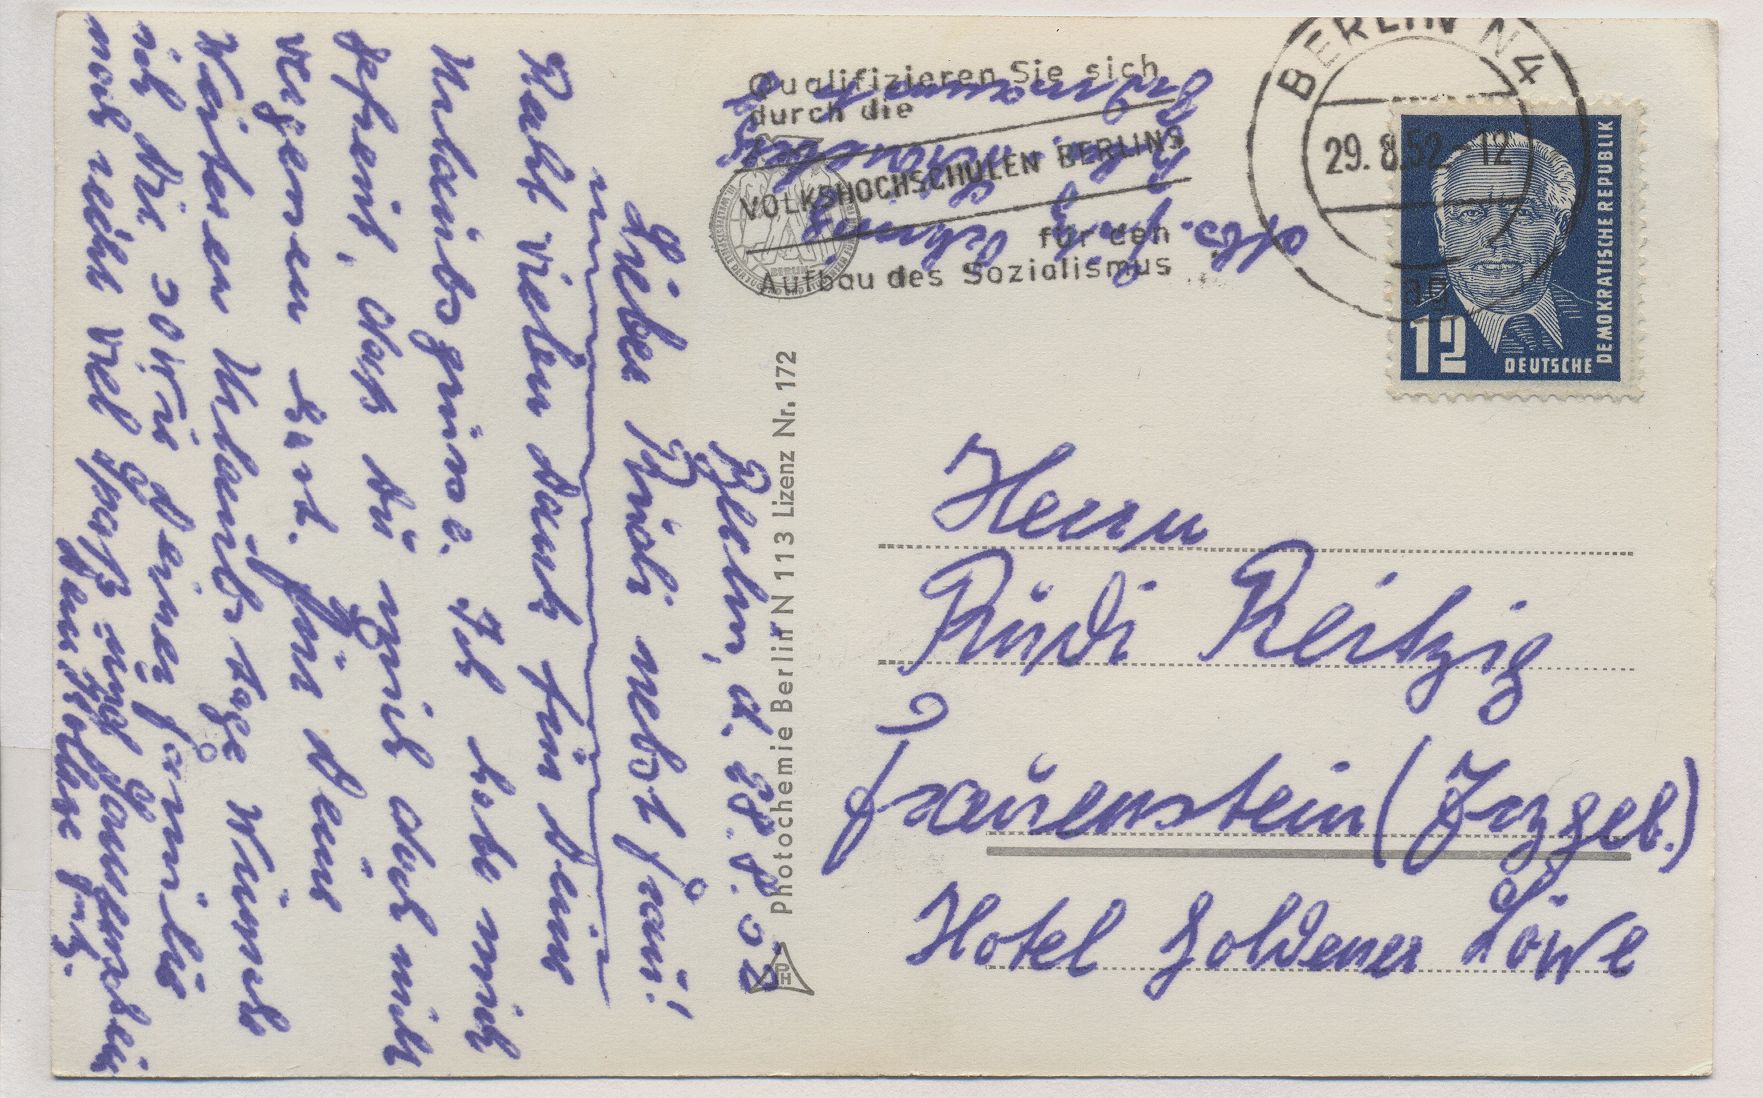 Berlin, d. 28.8.52
Lieber Rudi nebst Frau!
Habt vielen Dank für Deine
Urlaubsgrüsse. Ich habe mich
gefreut, dass Du mich auch mit
vergessen hast. Für Deine
weiteren Urlaubstage wünsche
ich Dir sowie Deiner Familie
noch recht viel Spaß und
Dein Kollege
Qualifizieren Sie sich
durch die
VOLKSHOCHSCHULEN BERLINS
für den
Aufbau des Sozialismus
Abs.
BERLIN N4
29.8.52.-12
ag
12
DEUTSCHE
DEMOKRATISCHE REPUBLIK
BERLIN
Photochemie Berlin N 113 Lizenz Nr. 172
Herrn
Rudi Reitzig
Frauenstein (Erzgeb.)
Hotel Goldener Löwe